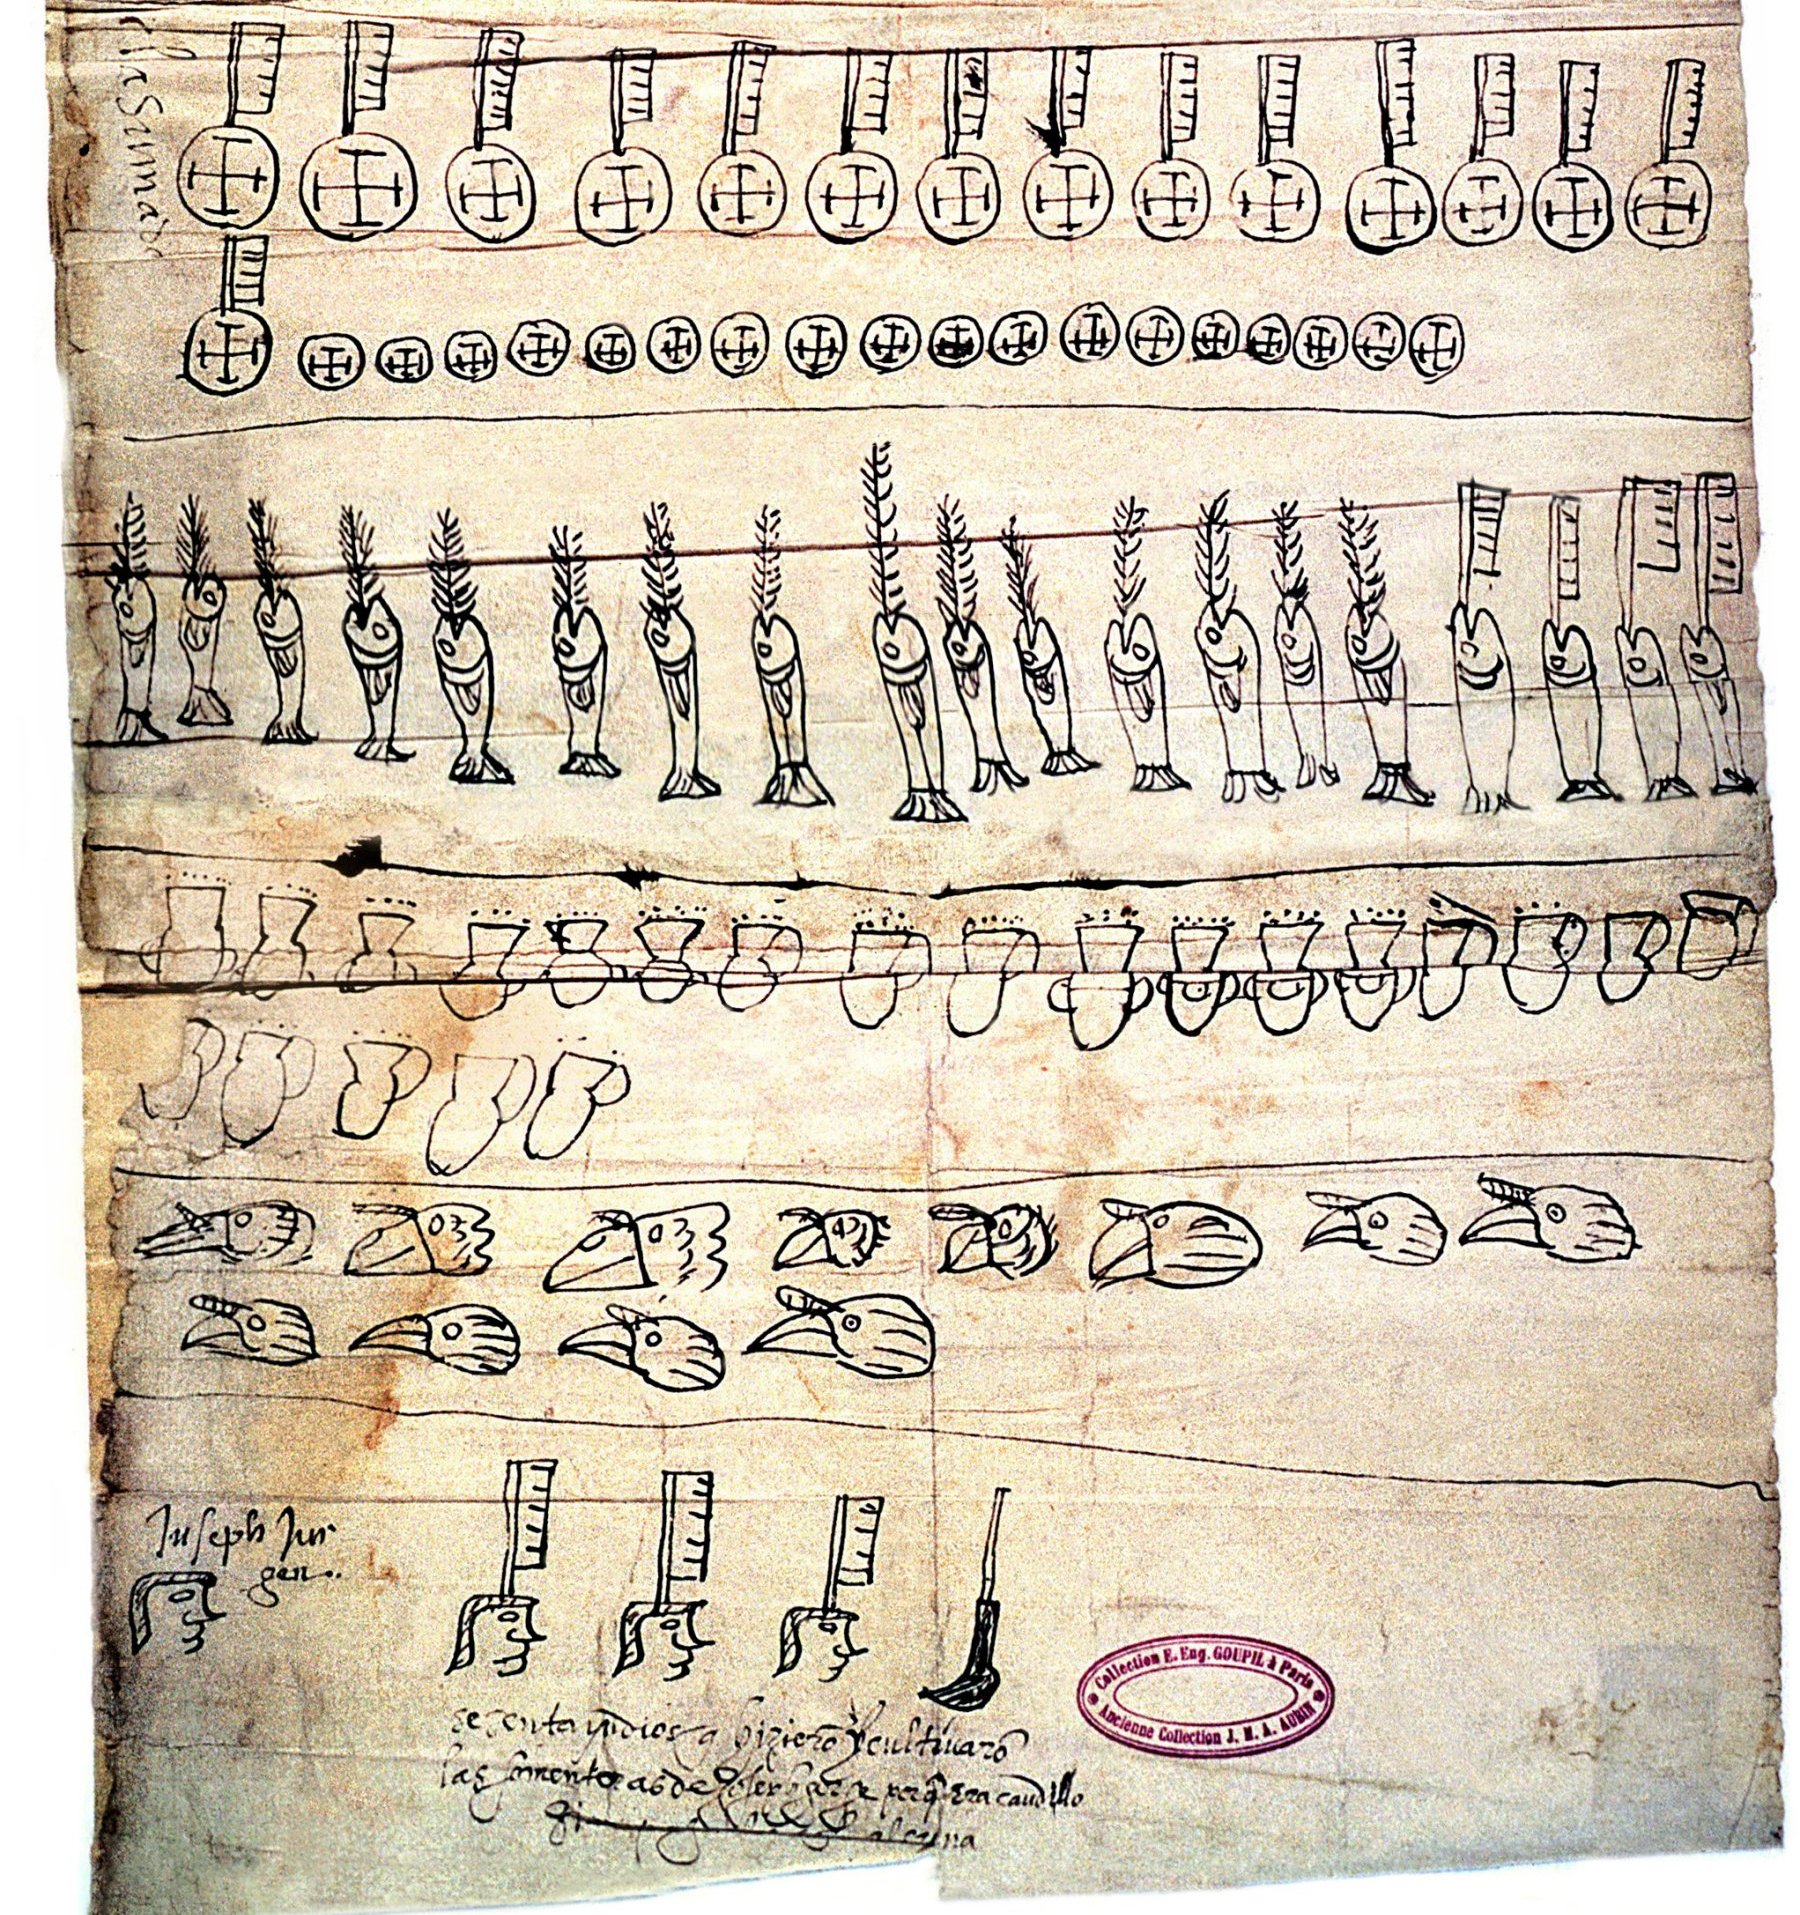 Juseph Jur
gen..
sesenta yndios q hizierō y cultivarō
las sementeras de porq̄ era caudillo
alguna
Collection E. Eug. GOUPIL à Paris
Ancienne Collection J. M. A. AUBIN